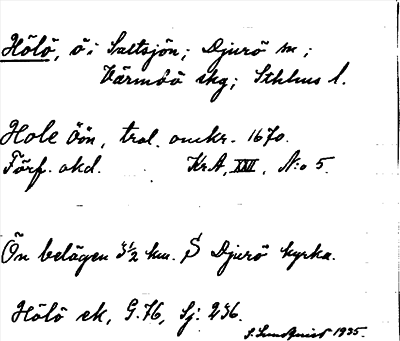 Hölö, ö i Saltsjön; Djurö sn;
Värmdö skg; Sthlms l.
Hole öön, trol. omkr. 1670.
Förf. okd. Kr.A, XXII, N:o 5.
Ön belägen 3½ km. S Djurö kyrka.
Hölö ek, G.76, Sj: 236.
S. Sundqvist 1935.